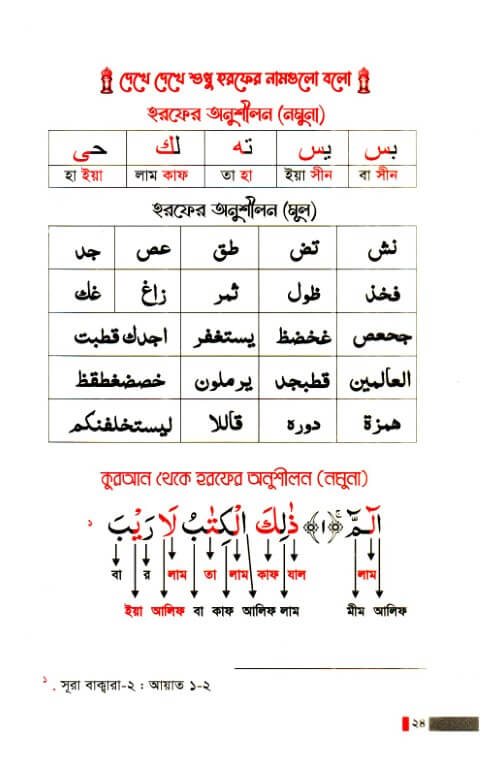 দেখে দেখে শুধু হরফের নামগুলো বলো
হরফের অনুশীলন (নমুনা)
بس يس ته لك حى
হা ইয়া লাম কাফ তা হা ইয়া সীন বা সীন
হরফের অনুশীলন (মূল)
نش تض طق عص جد
فخذ ظول ثمر زاغ غك
جحعص غخضظ يستغفر اجدك قطبت
العالمين قطبجد يرملون خصضغطقظ
همزة دوره قاللا ليستخلفنكم
কুরআন থেকে হরফের অনুশীলন (নমুনা)
الٓمّٓ ﴿١﴾ ذٰلِكَ الْكِتٰبُ لَا رَيْبَ ১
বা র লাম তা লাম কাফ যাল লাম
ইয়া আলিফ বা কাফ আলিফ লাম মীম আলিফ
১ . সূরা বাক্বারা-২ : আয়াত ১-২
২৪